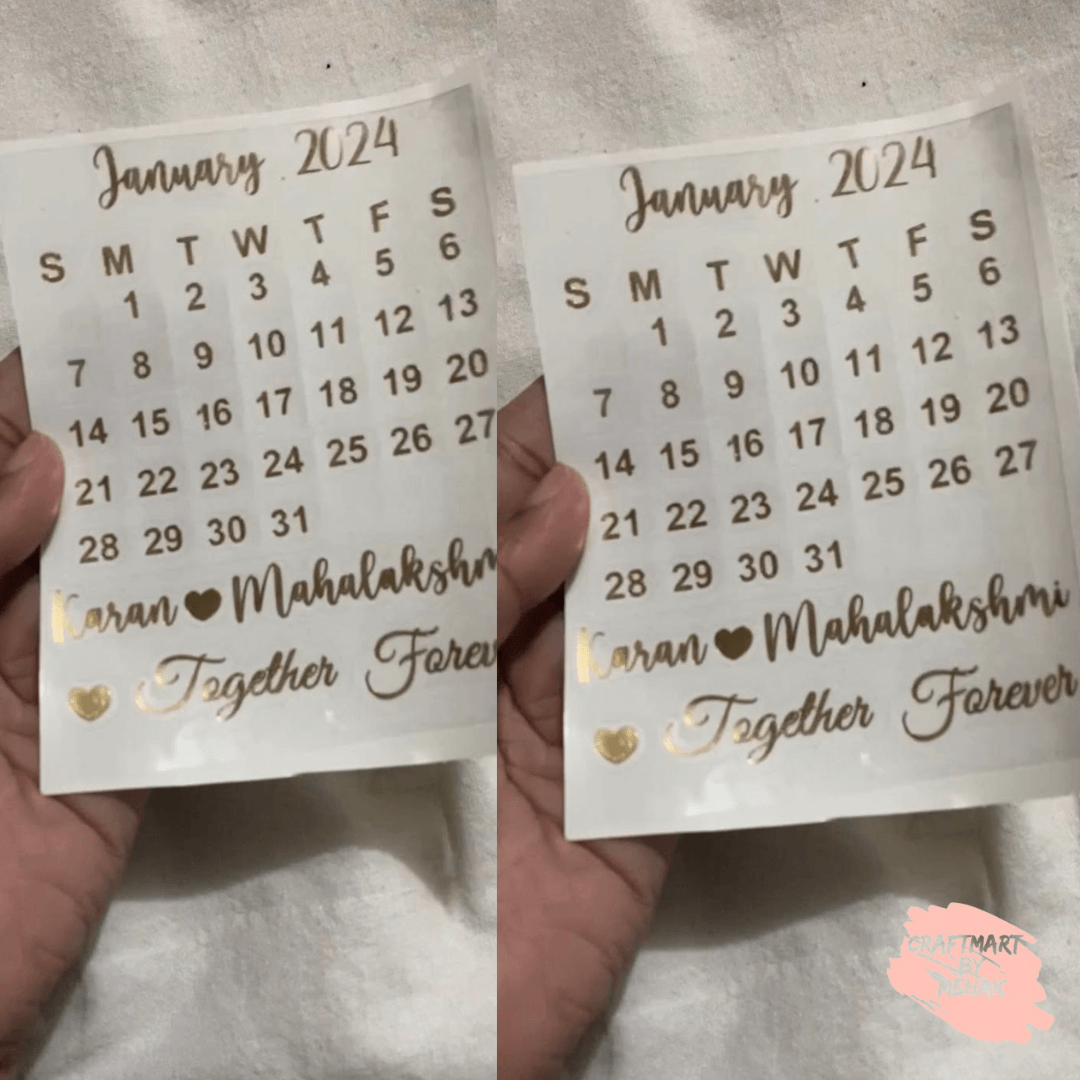 January 2024
S M T W T F S
1 2 3 4 5 6
7 8 9 10 11 12 13
14 15 16 17 18 19 20
21 22 23 24 25 26 27
28 29 30 31
Karan Mahalakshm
Together Forev
January 2024
S M T W T F S
1 2 3 4 5 6
7 8 9 10 11 12 13
14 15 16 17 18 19 20
21 22 23 24 25 26 27
28 29 30 31
Karan Mahalakshmi
Together Forever
CRAFTMART
BY